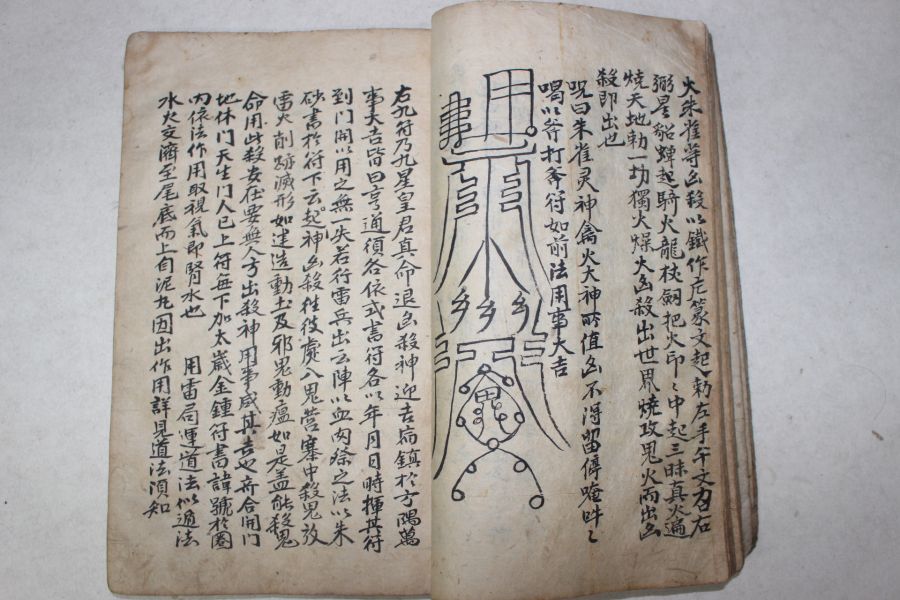 火朱雀等凶殺以鐵作尨篆文起勅左手午文召右
弼星貂蟬起騎火龍杖劒把火印〻中起三昧真火遍
燒天地勅一切獨火燥火凶殺出世界燒攻鬼火而出凶
殺即出也
呪曰朱雀灵神禽火大神所值凶不得留停唵吽〻
喝以斧打斧符如前法用事大吉
鬼
右九符乃九星皇君真命退凶殺神迎吉病鎮於方隅萬
事大吉皆曰亨通須各依式書符各以年月日時揮其符
到門開以用之無一失若行雷兵出云陣以血肉祭之法以朱
砂書於符下云起神凶殺徃彼處入鬼營寨中殺鬼放
雷火削跡滅形如建造動土及邪鬼動瘟如是盖能殺鬼
命用此殺者在要無人方出殺神用事咸其吉也奇合開門
地休門天生門人已上符每下加太歲金鍾符書諱號於圈
內依法作用取視氣即腎水也　用雷局運道法似遁法
水火交濟至尾底而上自泥丸囟出作用詳見道法須知